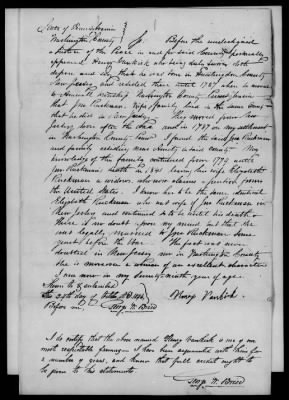 State of Pennsylvania
Washington County
Before the undersigned
a Justice of the Peace in and for said County personally
appeared Henry Vankirk who being duly sworn doth
depose and say that he was born in Huntingdon County
New Jersey and resided there until 1787 when he moved
to Washington County
that Joe Ruckman wife & family lived in the same County
that he did in New Jersey. They moved from New
Jersey soon after the and in 1787 on my settlement
in Washington County I found the said Joe Ruckman
and family residing near County in said county. My
knowledge of the family continued from 1773 until
Joe Ruckman's death in 1841 leaving his wife Elizabeth
Ruckman a widow, who now claims a pension from
the United States. I know her to be the same identical
Elizabeth Ruckman who was wife of Joe Ruckman in
New Jersey and continued to be until his death &
there is no doubt upon my mind but that she
was legally married to Joe Ruckman some
years before the War. The fact was never
doubted in New Jersey nor in Washington County
she is moreover a woman of an excellent character
I am now in my seventy-ninth year of age.
Sworn to & subscribed
the day of
Before me
Henry Vankirk
I do certify that the above named Henry Vankirk is one of our
most respectable farmers — I have been acquainted with him for
a number of years, and know that full credit ought to
be given to his statements.